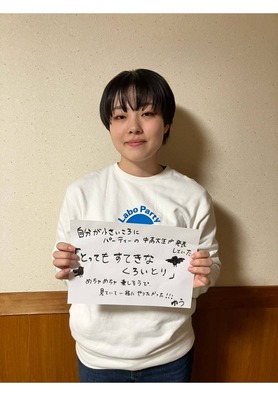 Labo Party
自分が小さいころに
パーティーの中高大生が発表
していた
「とっても すてきな
くろいとり」
めちゃめちゃ楽しそうで
見ていて一緒にやりたかった!!!
ゆう